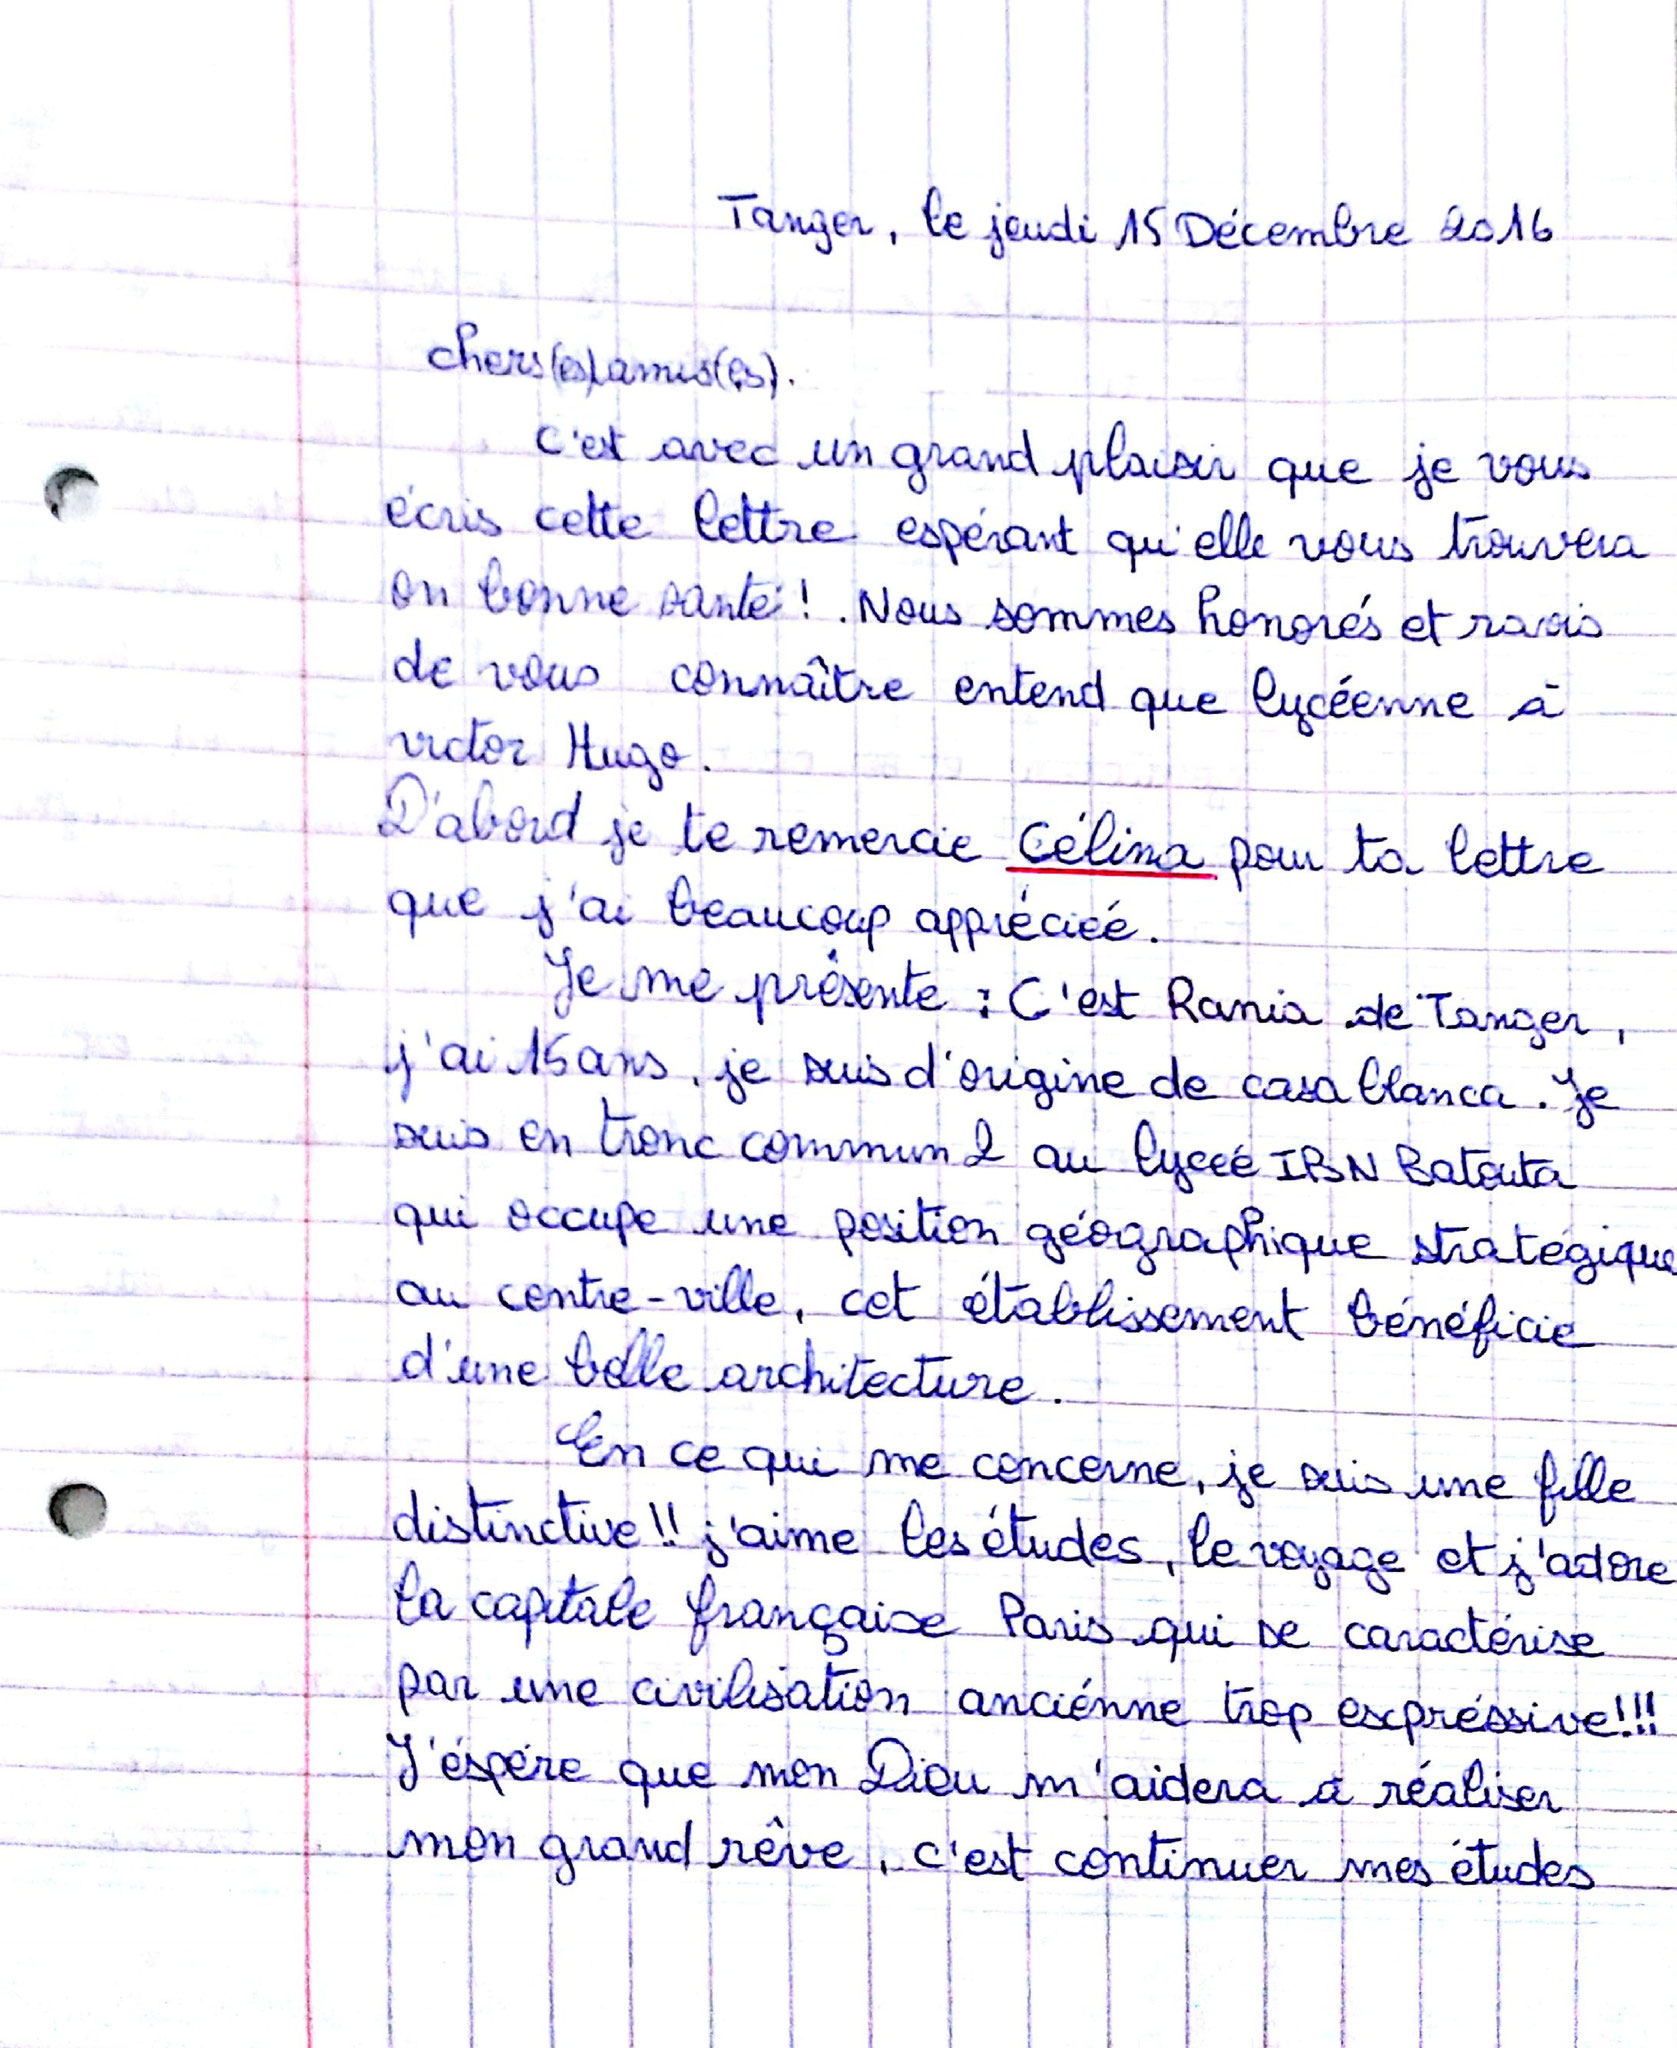 Tanger, le jeudi 15 Décembre 2016
chers(es) amis(es).
C'est avec un grand plaisir que je vous
écris cette lettre espérant qu'elle vous trouvera
en bonne santé ! . Nous sommes honorés et ravis
de vous connaître entend que lycéenne à
victor Hugo.
D'abord je te remercie Célina pour ta lettre
que j'ai beaucoup appréciéé.
Je me présente : C'est Rania de Tanger,
j'ai 15 ans, je suis d'origine de casa blanca. Je
suis en tronc commun 2 au lyceé IBN Batouta
qui occupe une position géographique stratégique
au centre-ville, cet établissement bénéficie
d'une belle architecture.
En ce qui me concerne, je suis une fille
distinctive !! j'aime les études, le voyage et j'adore
la capitale française Paris qui se caractérise
par une civilisation anciénne trop expréssive!!!
J'éspére que mon Dieu m'aidera à réaliser
mon grand rêve, c'est continuer mes études